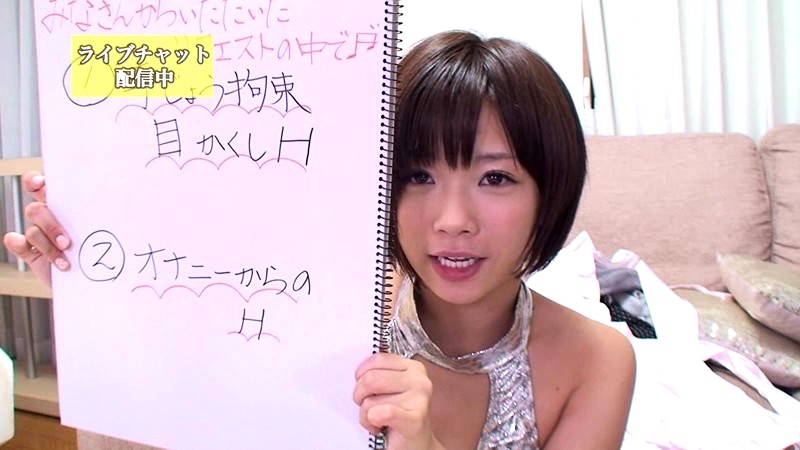 みなさんからいただいた
エストの中で♪
ライブチャット
配信中
①
じょう拘束
目かくしH
② オナニーからの
H